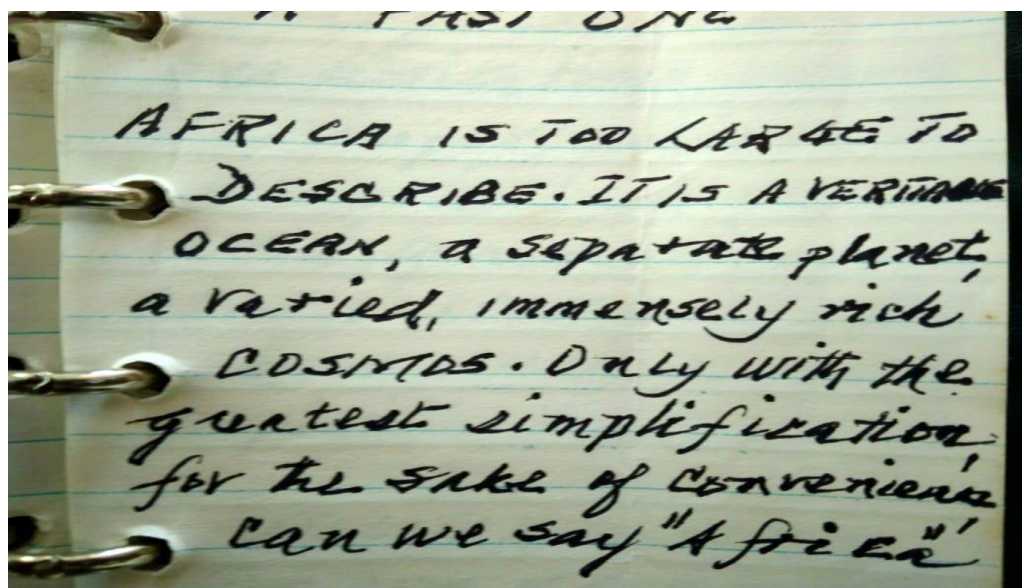 A FAST ONE
AFRICA IS TOO LARGE TO
DESCRIBE. IT IS A VERITABLE
OCEAN, a separate planet,
a varied, immensely rich
COSMOS. Only with the
greatest simplification,
for the sake of convenience,
can we say "Africa"